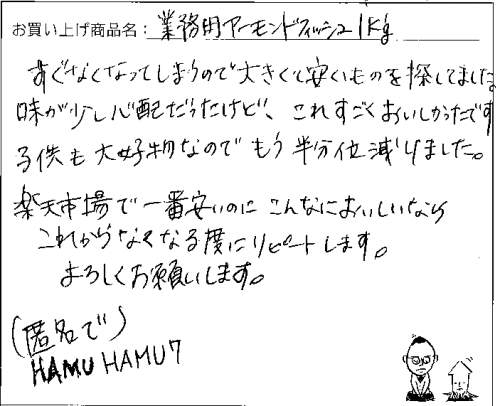 お買い上げ商品名：業務用アーモンドフィッシュ1kg
すぐなくなってしまうので大きくて安いものを探してました。
味が少し心配だったけど、これすごくおいしかったです
子供も大好物なのでもう半分位減りました。
楽天市場で一番安いのにこんなにおいしいなら
これからなくなる度にリピートします。
よろしくお願いします。
(匿名で)
HAMU HAMU7